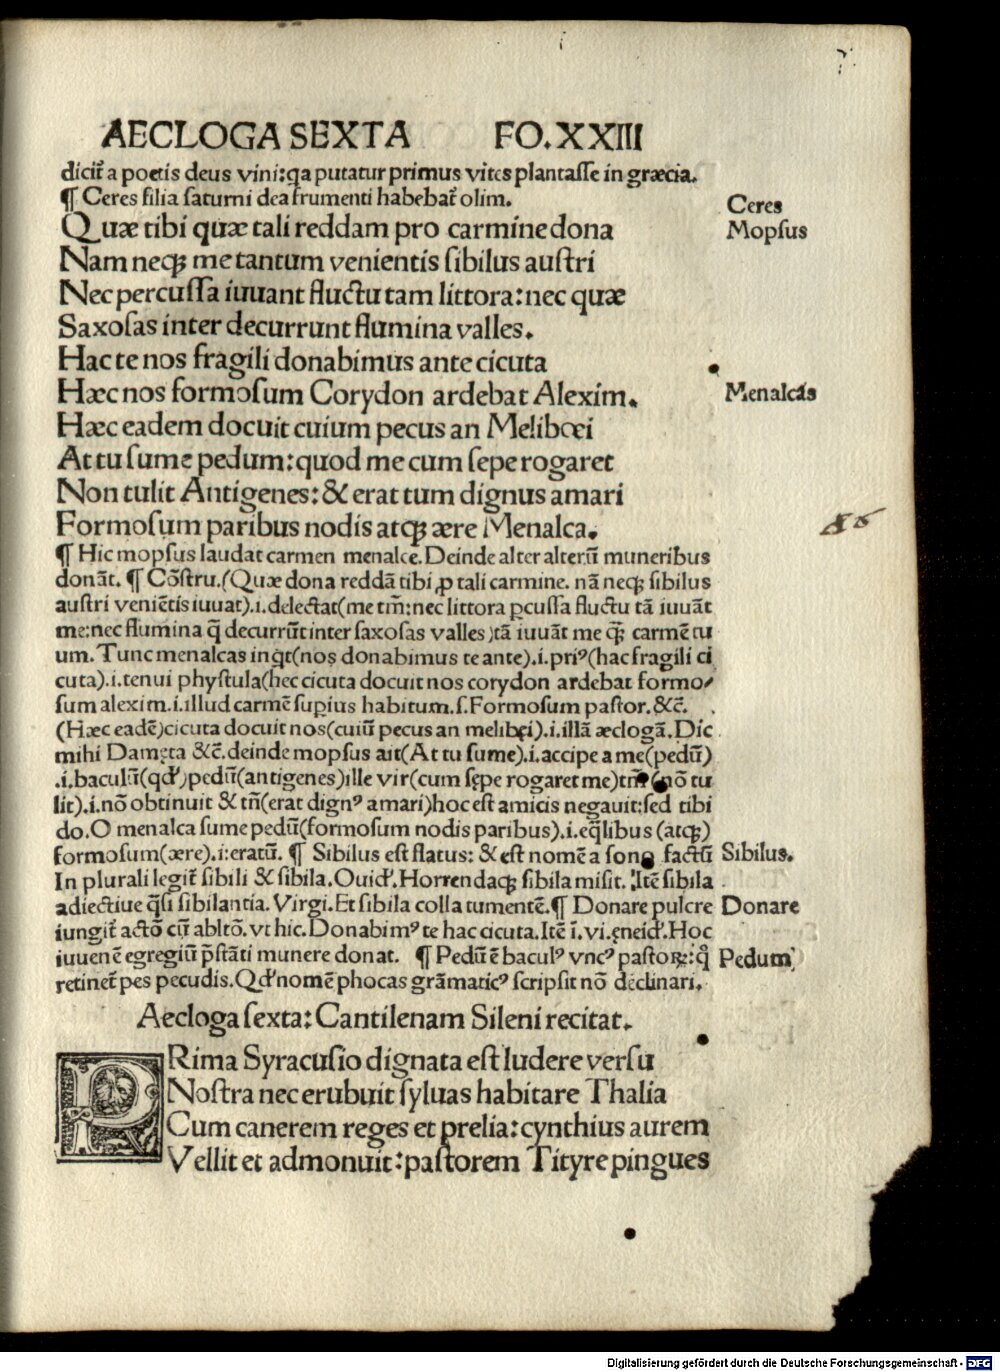 AECLOGA SEXTA FO.XXIII
dicit᷒ a poetis deus vini:qa putatur primus vites plantasse in græcia.
¶ Ceres filia saturni dea frumenti habebat᷒ olim.
Ceres
Quæ tibi quæ tali reddam pro carmine dona
Mopsus
Nam neqꝫ me tantum venientis sibilus austri
Nec percussa iuuant fluctu tam littora:nec quæ
Saxosas inter decurrunt flumina valles.
Hac te nos fragili donabimus ante cicuta
Hæc nos formosum Corydon ardebat Alexim.
Menalcas
Hæc eadem docuit cuium pecus an Melibœi
At tu sume pedum:quod me cum sepe rogaret
Non tulit Antigenes:& erat tum dignus amari
Formosum paribus nodis atqꝫ ære Menalca.
¶ Hic mopsus laudat carmen menalce.Deinde alter alterū muneribus
donāt. ¶ Cōstru.(Quæ dona reddā tibi ꝓ tali carmine. nā neqꝫ sibilus
austri veniētis iuuat).i.delectat(me tm̄:nec littora ꝑcussa fluctu tā iuuāt
me:nec flumina q̄ decurrūt inter saxosas valles)tā iuuāt me q̄ꝫ carmē tu
um.Tunc menalcas inqt(nos donabimus te ante).i.priꝰ(hac fragili ci
cuta).i.tenui phystula(hec cicuta docuit nos corydon ardebat formo⸗
sum alexim.i.illud carmē supius habitum.s.Formosum pastor.&c̄.
(Hæc eadē)cicuta docuit nos(cuiū pecus an melibęi).i.illā æclogā.Dic
mihi Damęta &c̄.deinde mopsus ait(At tu sume).i.accipe a me(pedū)
.i.baculū(qď)pedū(antigenes)ille vir(cum sępe rogaret me)tm̄ (nō tu
lit).i.nō obtinuit & tn̄(erat dignꝰ amari)hoc est amicis negauit:sed tibi
do.O menalca sume pedū(formosum nodis paribus).i.eq̄libus (atqꝫ)
formosum(ære).i:eratū. ¶ Sibilus est flatus: & est nomē a sono factū
Sibilus.
In plurali legit᷒ sibili & sibila.Ouid.Horrendaqꝫ sibila misit. Itē sibila
adiectiue q̄si sibilantia. Virgi.Et sibila colla tumentē.¶ Donare pulcre
Donare
iungit᷒ actō cū abltō. vt hic.Donabimꝰ te hac cicuta.Itē ī.vi.ęneid.Hoc
iuuenē egregiū p̄stāti munere donat. ¶ Pedū ē baculꝰ vncꝰ pastoꝝ:q̊
Pedum
retinet᷒ pes pecudis.Qď nomē phocas grāmaticꝰ scripsit nō declinari.
Aecloga sexta:Cantilenam Sileni recitat.
PRima Syracusio dignata est ludere versu
Nostra nec erubuit syluas habitare Thalia
Cum canerem reges et prelia:cynthius aurem
Vellit et admonuit:pastorem Tityre pingues
Digitalisierung gefördert durch die Deutsche Forschungsgemeinschaft - DFG